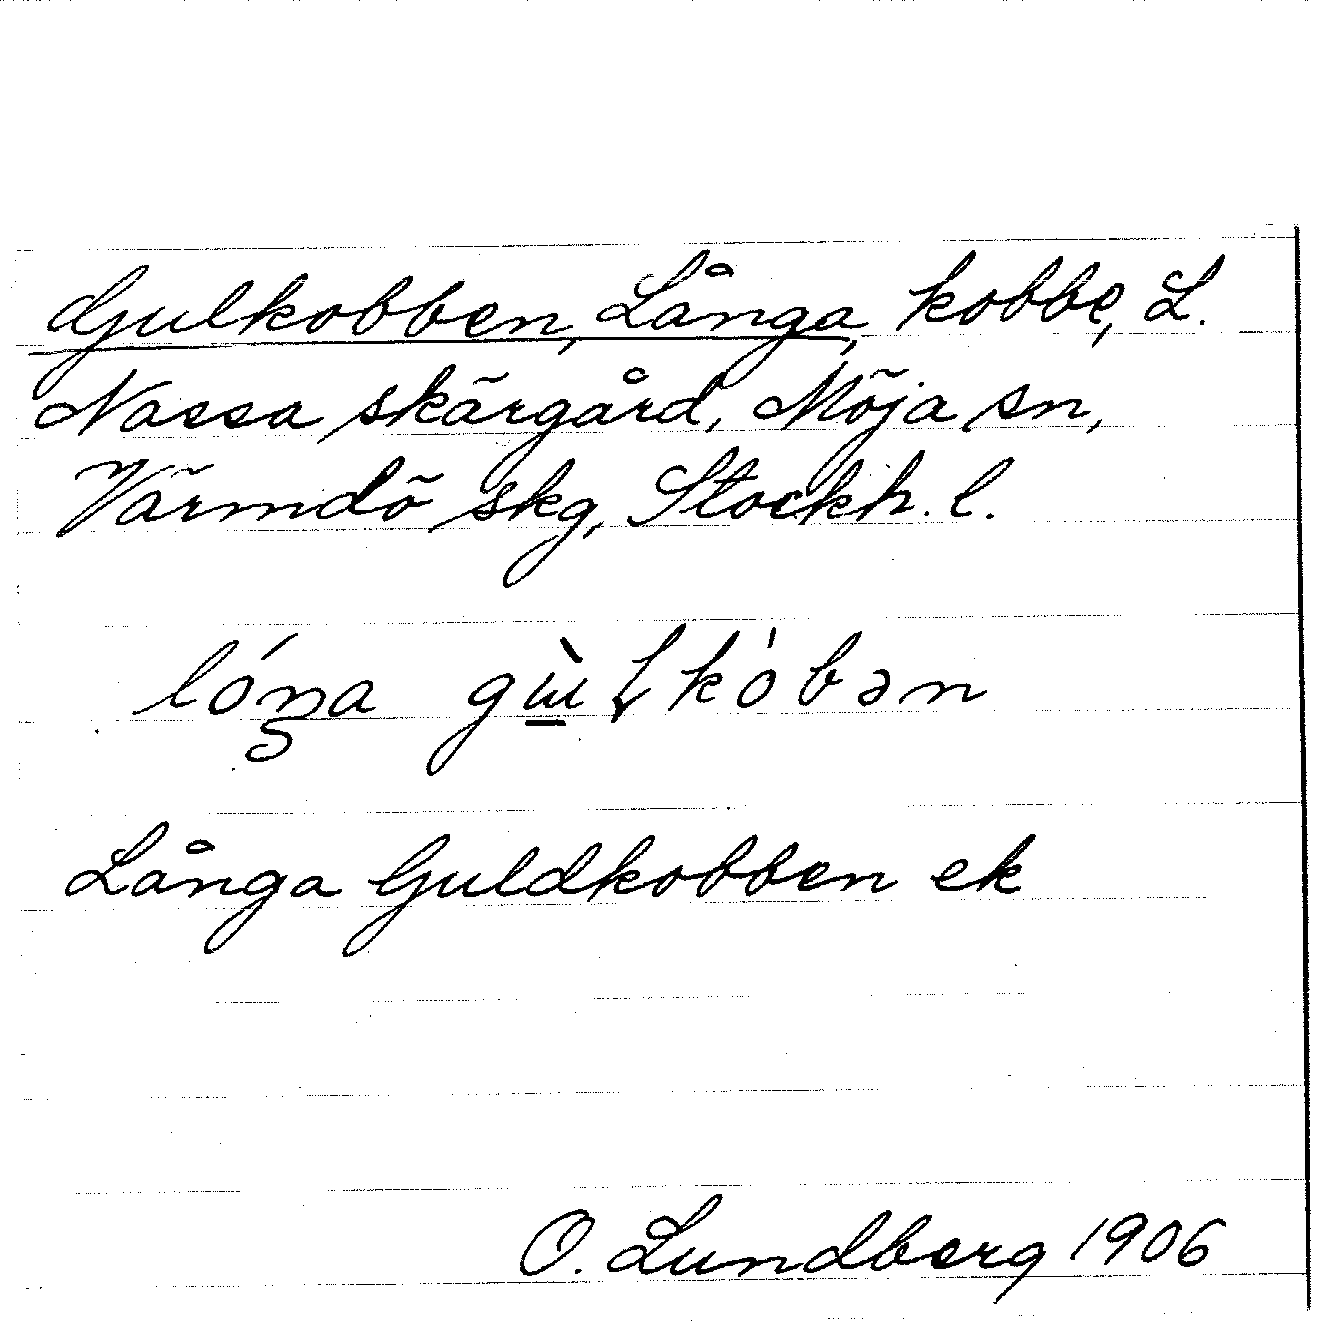 Gulkobben, Långa, kobbe, L.
Nassa skärgård, Möja sn,
Värmdö skg, Stockh. l.
lóŋa gɯ̀ɭkòbən
Långa Guldkobben ek
O. Lundberg 1906